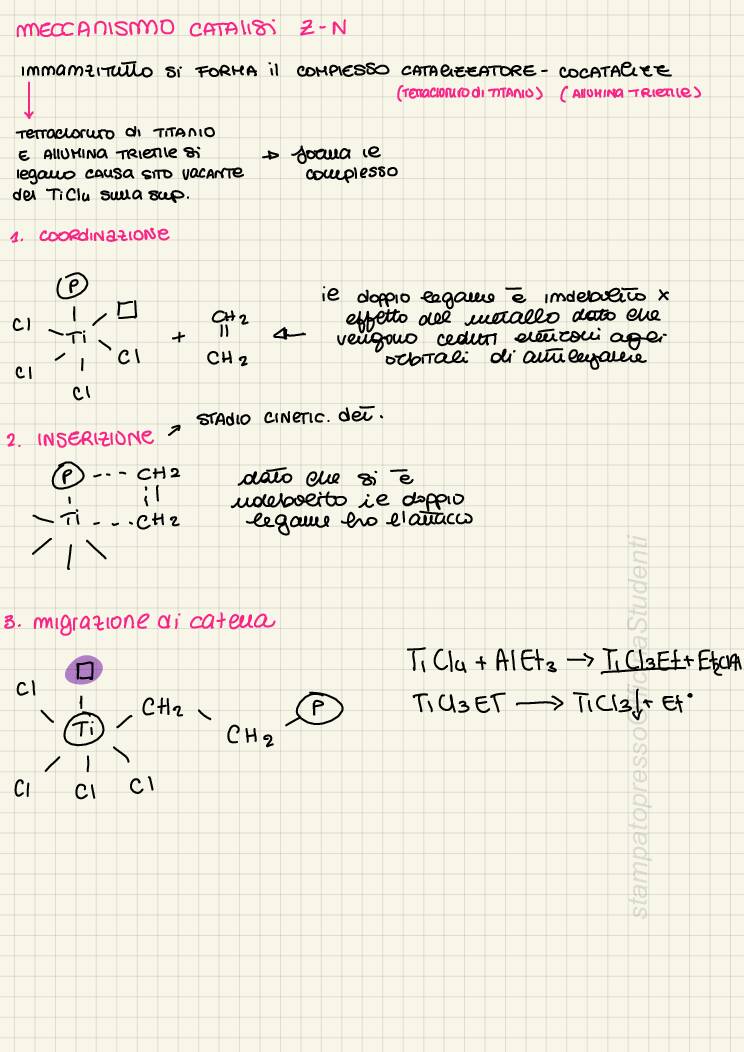 MECCANISMO CATALISI Z-N
IMMANZITUTTO SI FORMA il COMPLESSO CATALIZZATORE - COCATALIZZ
(TETRACLORURO DI TITANIO) (ALLUMINA TRIETILE)
TETRACLORURO di TITANIO
E ALLUMINA TRIETILE SI
legano CAUSA SITO VACANTE
del TiCl4 sulla sup.
→ forma il
complesso
1. COORDINAZIONE
P
Cl
Ti
Cl
Cl
Cl
+
CH2
||
CH2
il doppio legame è indebolito x
effetto del metallo dato che
vengono ceduti elettroni agli
orbitali di antilegame
2. INSERIZIONE → STADIO CINETIC. det.
P --- CH2
Ti --- CH2
dato che si è
indebolito il doppio
legame ho l'attacco
3. migrazione di catena
Cl
Ti
CH2
CH2
P
Cl
Cl
Cl
TiCl4 + AlEt3 → TiCl3Et + Et2ClAl
TiCl3ET → TiCl3↓ + Et•